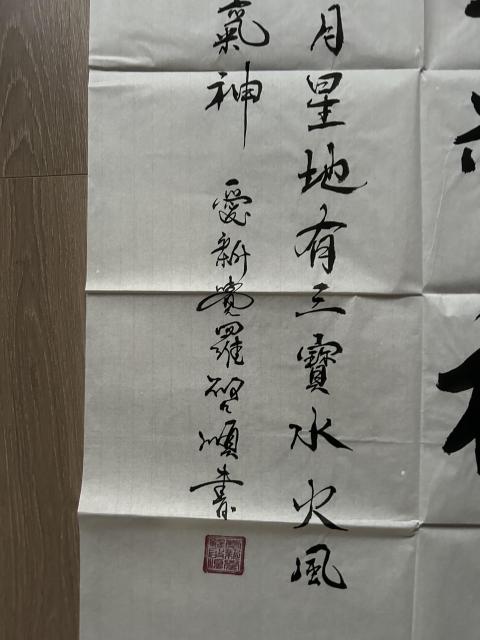 月星地有三寶水火風
氣神
愛新覺羅啓順書